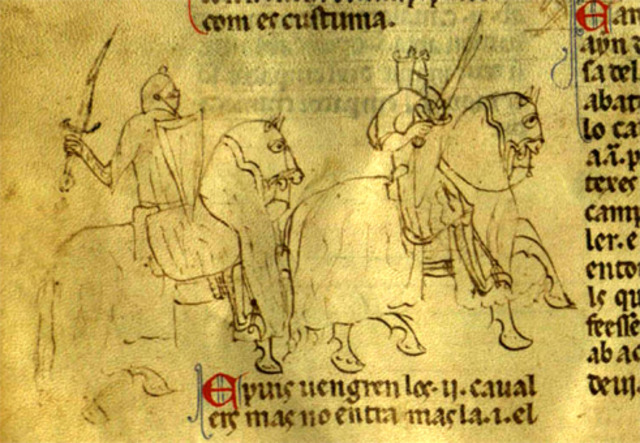 com es custuma.
Epuis uengren los .ii. caual
ers mas no entra mas la .i. el
ayn
sa tel
abat
lo ca
texes
camp
ler. e
ento
ls qu
feesse
ab ac